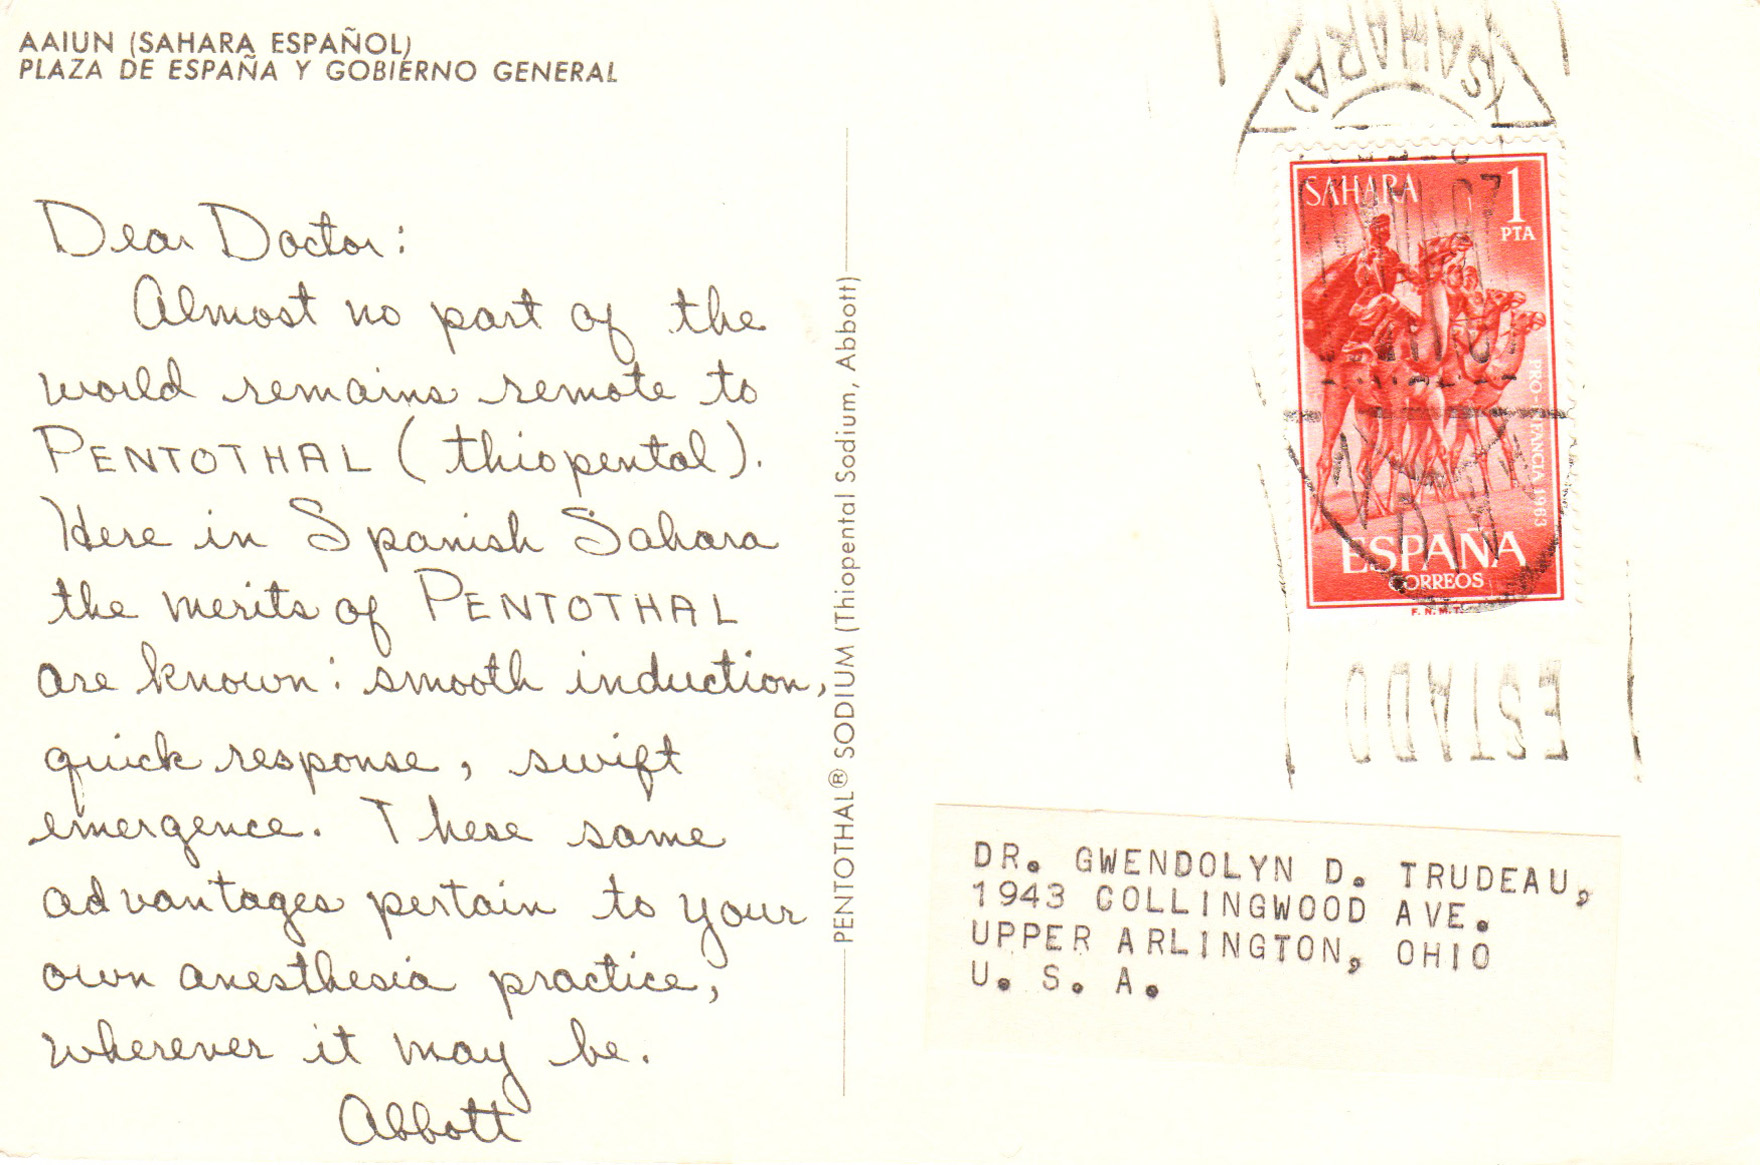 AAIUN (SAHARA ESPAÑOL)
PLAZA DE ESPAÑA Y GOBIERNO GENERAL
Dear Doctor:
Almost no part of the
world remains remote to
PENTOTHAL (thiopental).
Here in Spanish Sahara
the merits of PENTOTHAL
are known: smooth induction,
quick response, swift
emergence. These same
advantages pertain to your
own anesthesia practice,
wherever it may be.
Abbott
PENTOTHAL® SODIUM (Thiopental Sodium, Abbott)
(SAHARA)
SAHARA
1
PTA
PRO-INFANCIA 1963
ESPAÑA
CORREOS
F.N.M.T.
ESTADO
DR. GWENDOLYN D. TRUDEAU,
1943 COLLINGWOOD AVE.
UPPER ARLINGTON, OHIO
U. S. A.